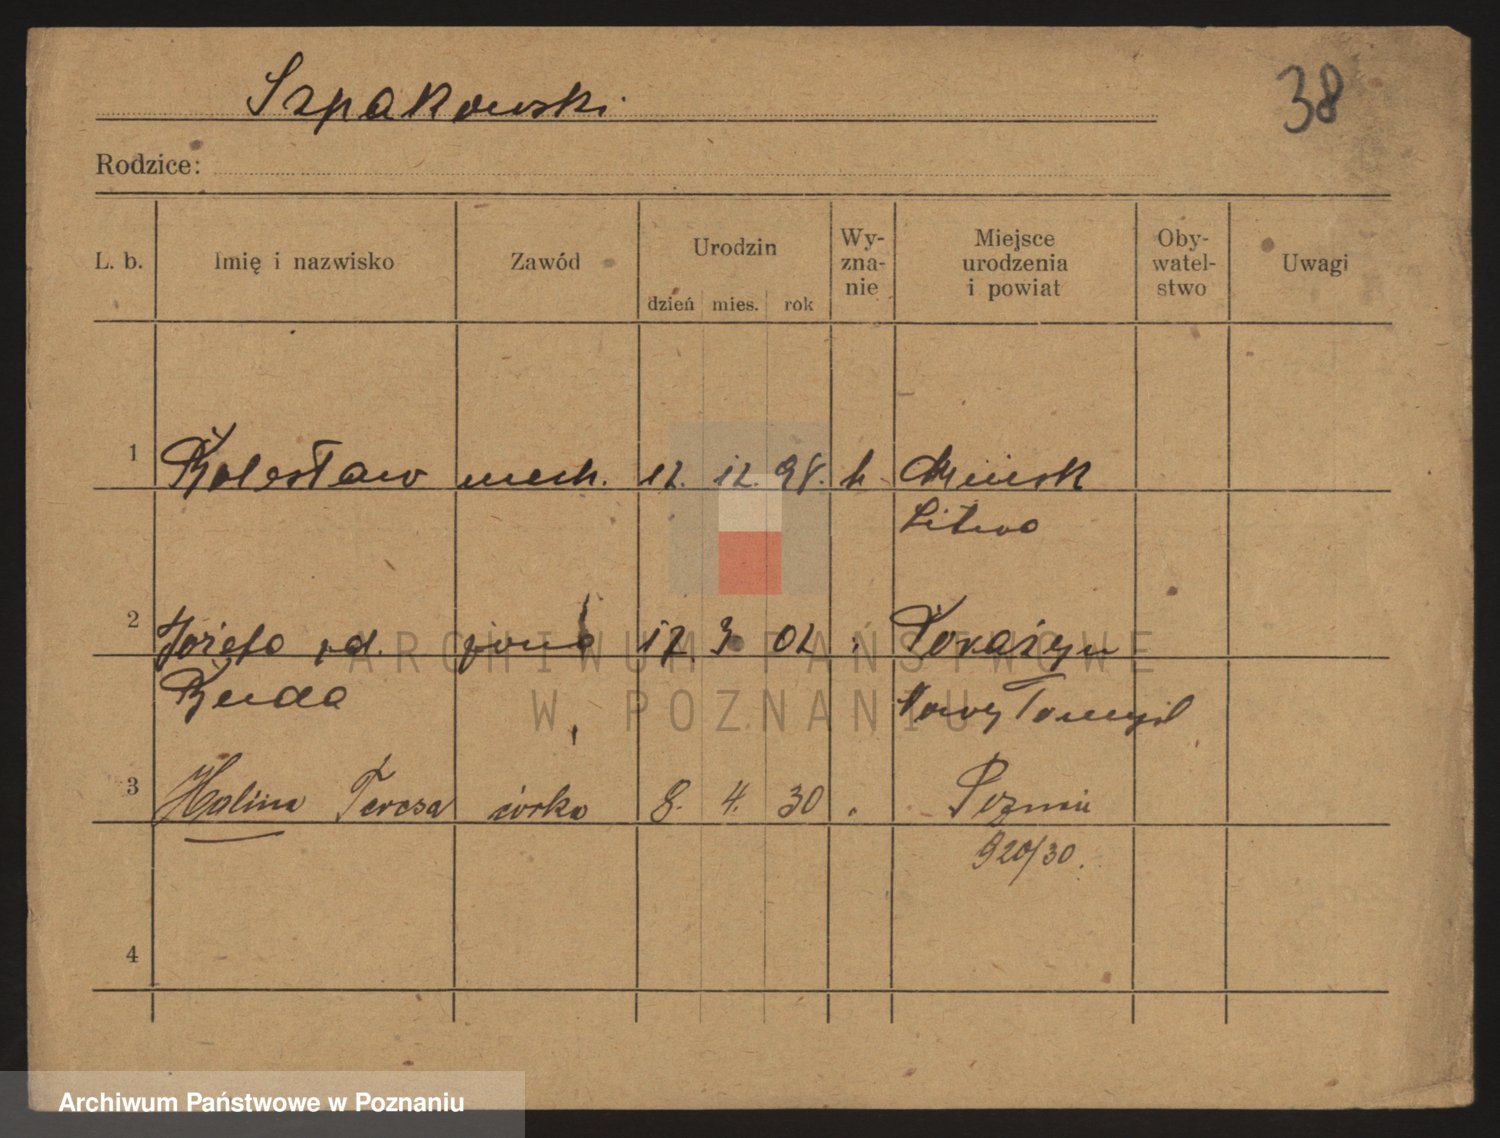 38
Szpakowski
Rodzice:
L. b. Imię i nazwisko Zawód Urodzin dzień mies. rok Wy-zna-nie Miejsce urodzenia i powiat Oby-watel-stwo Uwagi
1 Bolesław mech. 12. 12. 98. k Mińsk
Litwa
2 Józefa rd. żona 17. 3 02 "
Buda Nowy Tomyśl
3 Halina Teresa córka 8. 4. 30 " Poznań
920/30.
4
ARCHIWUM PAŃSTWOWE
W POZNANIU
Archiwum Państwowe w Poznaniu